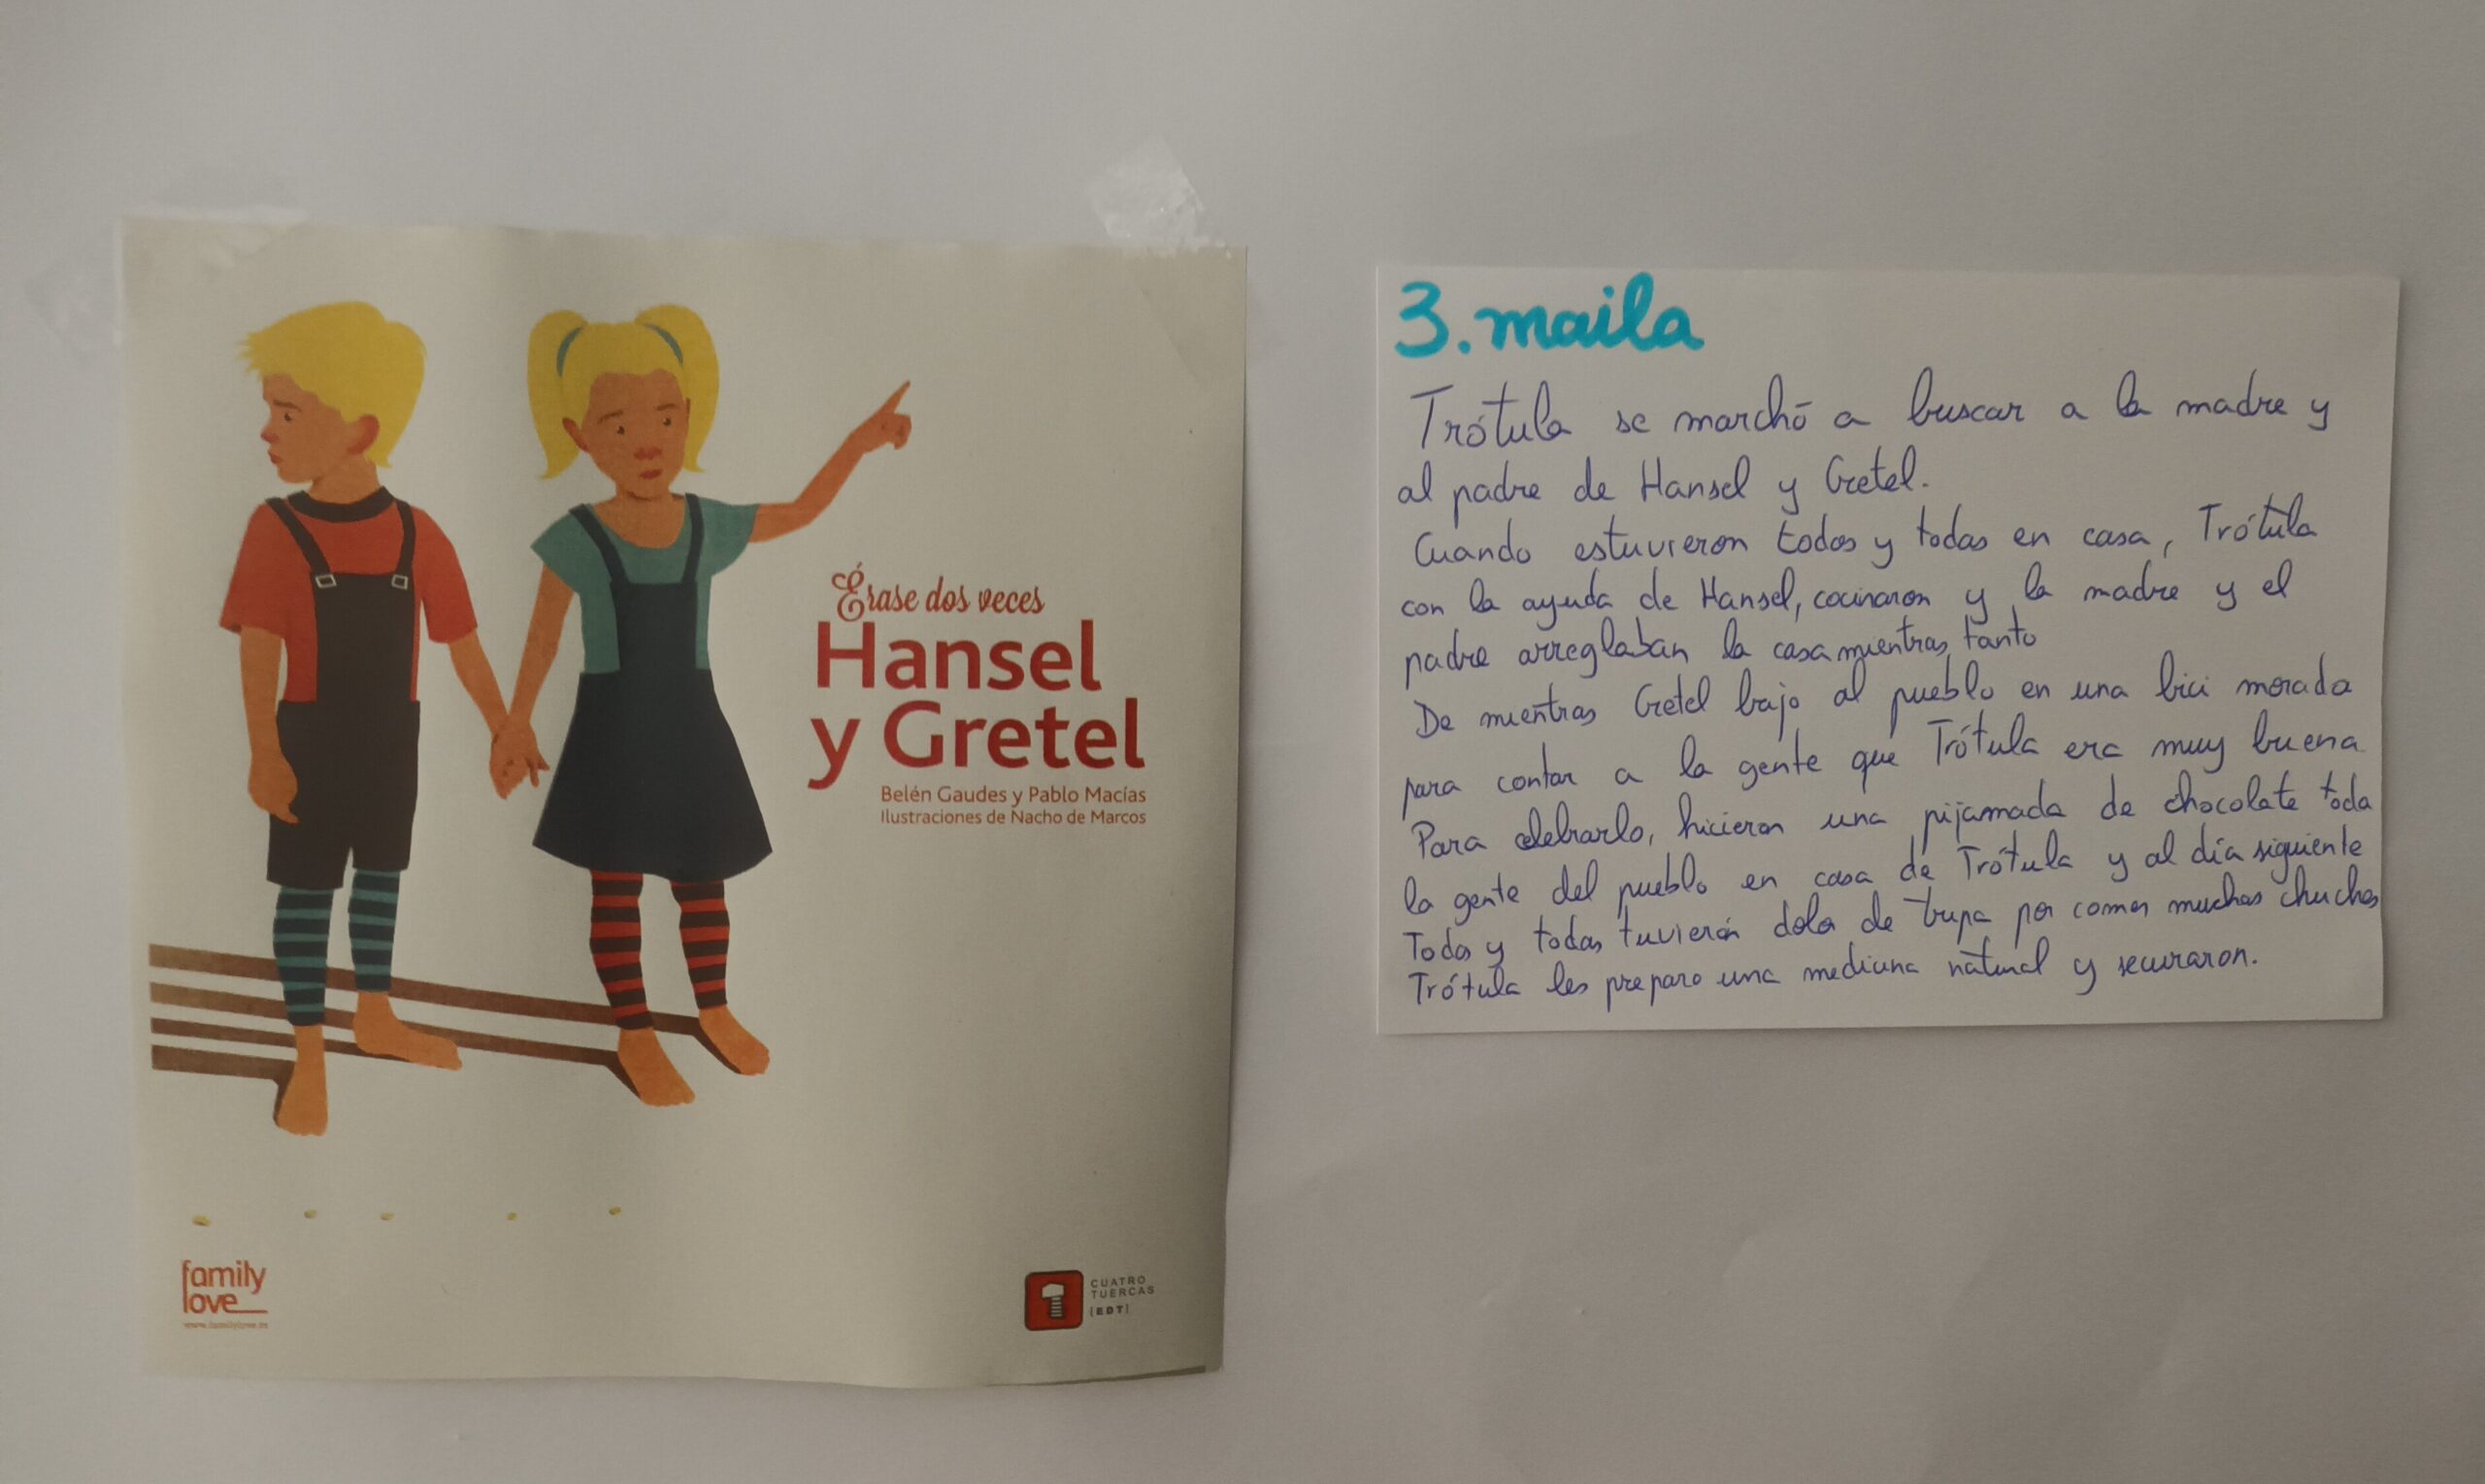 Érase dos veces
Hansel
y Gretel
Belén Gaudes y Pablo Macías
Ilustraciones de Nacho de Marcos
family
love
www.familylove.es
CUATRO
TUERCAS
[EDT]
3. maila
Trótula se marchó a buscar a la madre y
al padre de Hansel y Gretel.
Cuando estuvieron todos y todas en casa, Trótula
con la ayuda de Hansel, cocinaron y la madre y el
padre arreglaban la casa mientras tanto
De mientras Gretel bajo al pueblo en una bici morada
para contar a la gente que Trótula era muy buena
Para celebrarlo, hicieron una pijamada de chocolate toda
la gente del pueblo en casa de Trótula y al día siguiente
Todos y todas tuvieron dolor de tripa por comer muchas chuches
Trótula les preparo una medicina natural y se curaron.